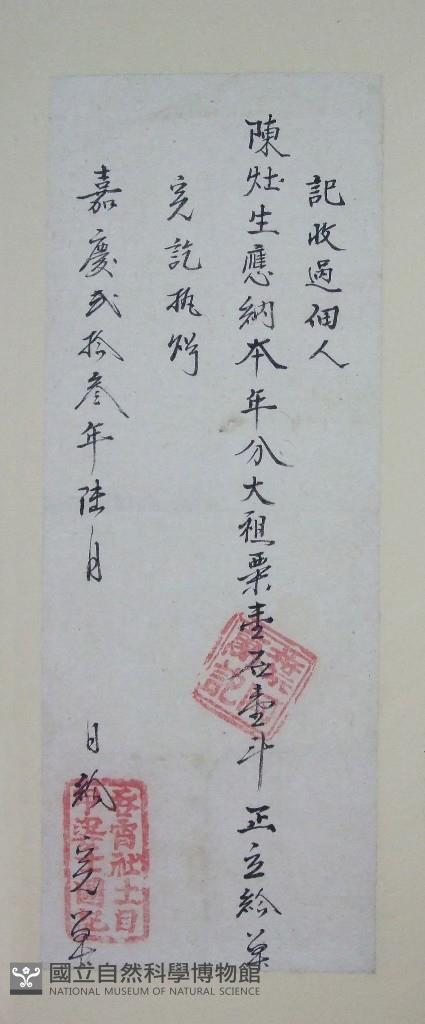 記收過佃人
陳灶生應納本年分大租粟壹石壹斗正立給單
完訖執照
嘉慶弍拾叁年陸月　日給完單
吞霄社土目
國立自然科學博物館
NATIONAL MUSEUM OF NATURAL SCIENCE